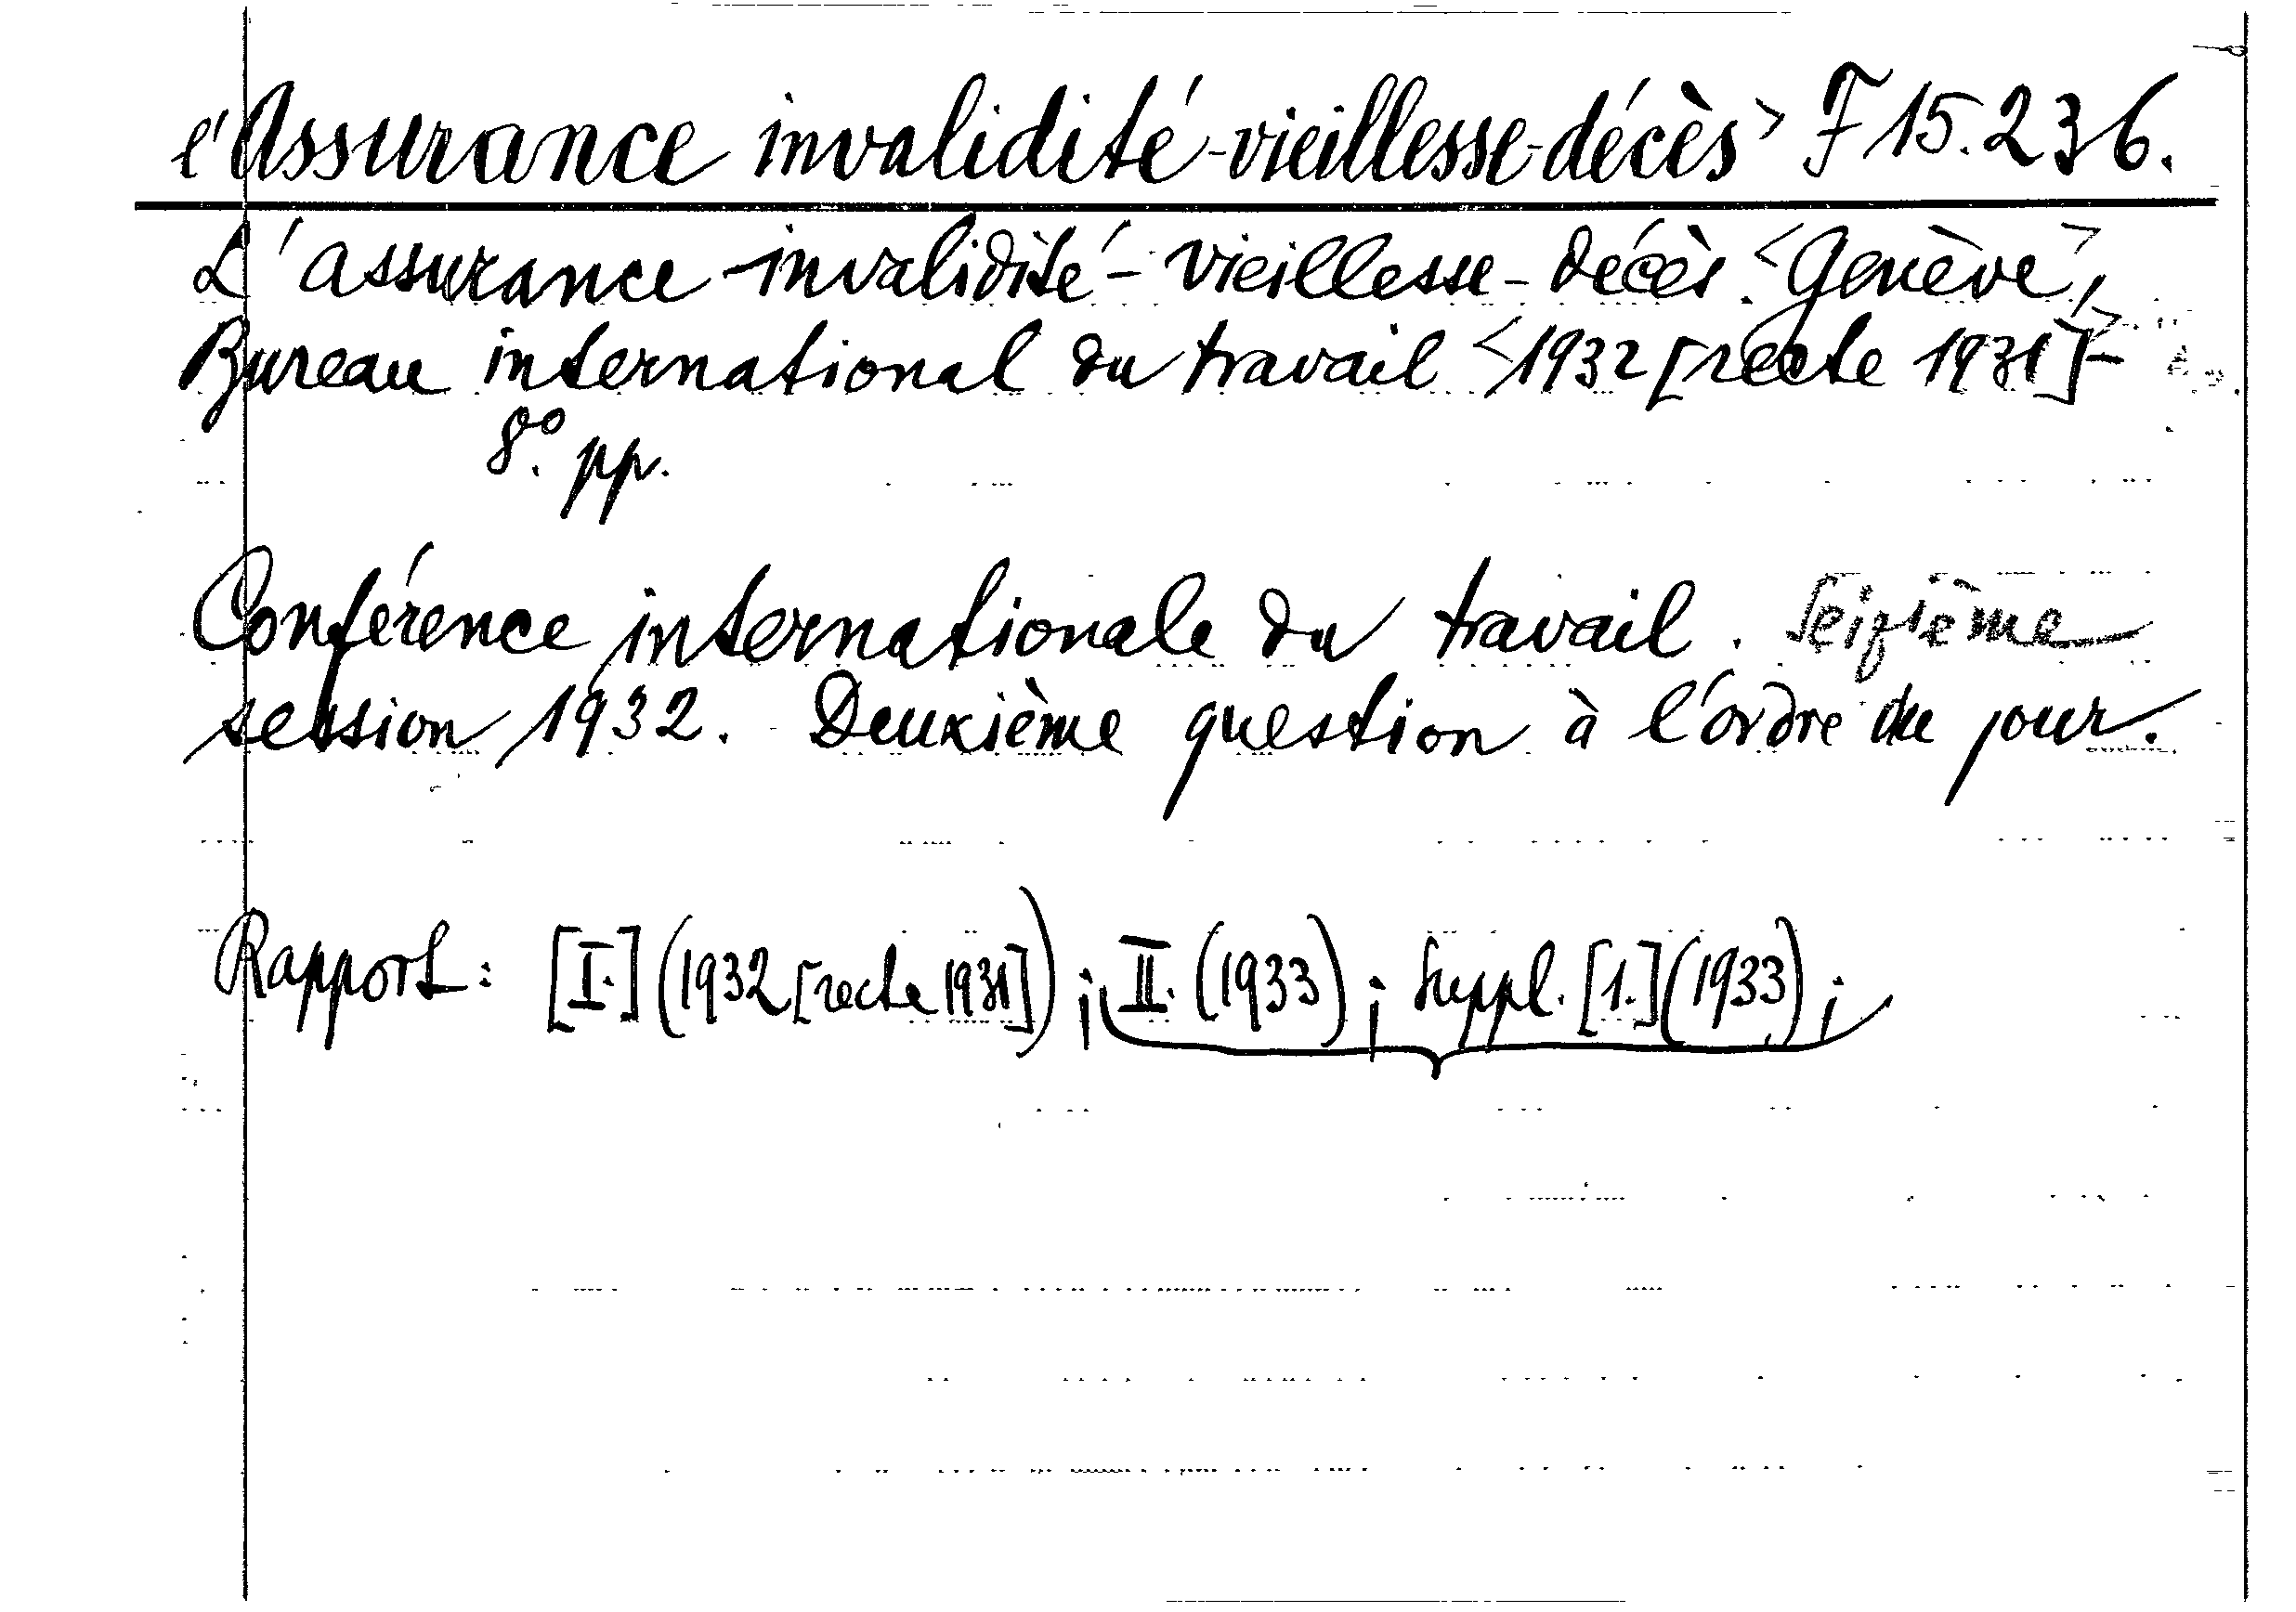 l'Assurance invalidité-vieillesse-décès> F 15.236.
L'assurance-invalidité-vieillesse-décès. <Genève,>
Bureau international du travail <1932 [recte 1931]>-
8° pp.
Conférence internationale du travail. Seizième
session 1932. Deuxième question à l'ordre du jour.
Rapport: [I.] (1932 [recte 1931]); II. (1933); Suppl. [1.] (1933);